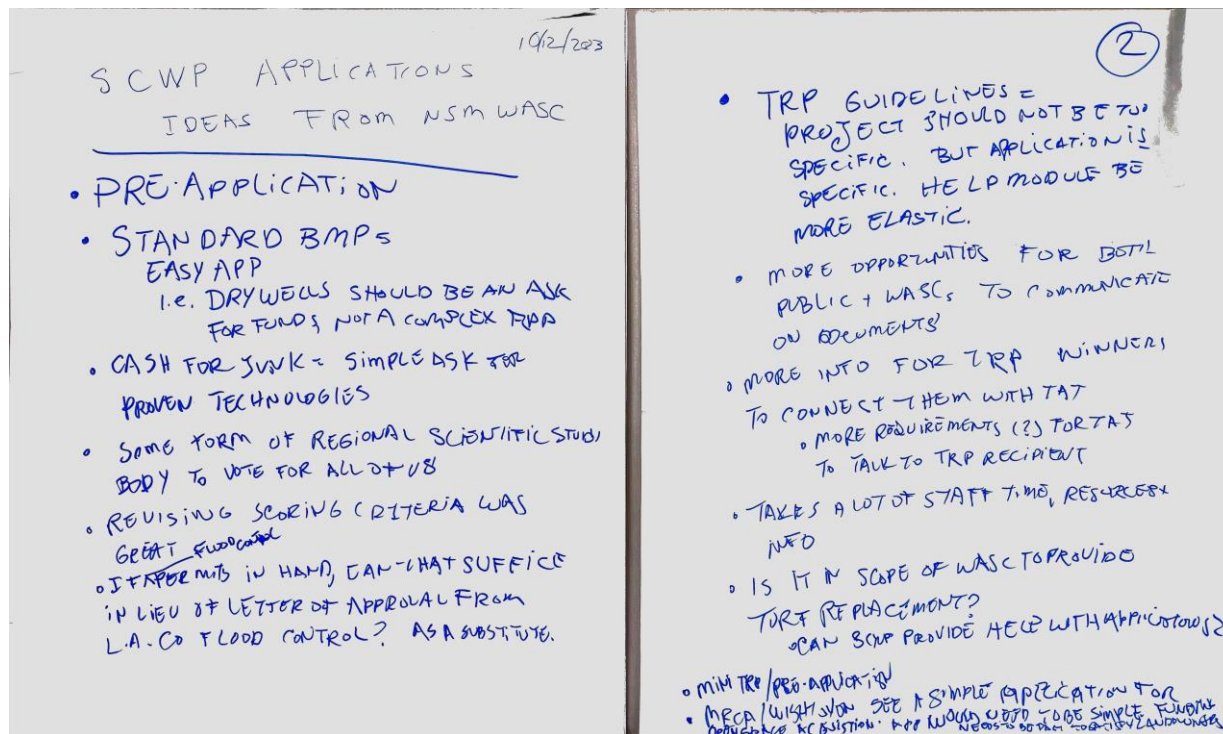 10/12/2023
SCWP APPLICATIONS
IDEAS FROM NSMWASC
• PRE-APPLICATION
• STANDARD BMPs
EASY APP
i.e. DRYWELLS SHOULD BE AN ASK
FOR FUNDS, NOT A COMPLEX APP
• CASH FOR JUNK = SIMPLE ASK FOR
PROVEN TECHNOLOGIES
• SOME FORM OF REGIONAL SCIENTIFIC STUDY
BODY TO VOTE FOR ALL OF US
• REVISING SCORING CRITERIA WAS
GREAT
FLOOD CONTROL
• IF PERMITS IN HAND, CAN THAT SUFFICE
IN LIEU OF LETTER OF APPROVAL FROM
L.A. CO FLOOD CONTROL? AS A SUBSTITUTE.
2
• TRP GUIDELINES =
PROJECT SHOULD NOT BE TOO
SPECIFIC. BUT APPLICATION IS
SPECIFIC. HELP MODULE BE
MORE ELASTIC.
• MORE OPPORTUNITIES FOR BOTH
PUBLIC + WASCs TO COMMUNICATE
ON DOCUMENTS
• MORE INFO FOR TRP WINNERS
TO CONNECT THEM WITH TAT
• MORE REQUIREMENTS (?) FOR TAT
TO TALK TO TRP RECIPIENT
• TAKES A LOT OF STAFF TIME, RESOURCES +
INFO
• IS IT IN SCOPE OF WASC TO PROVIDE
TURF REPLACEMENT?
• CAN SCWP PROVIDE HELP WITH APPLICATIONS?
• MINI TRP/PRE-APPLICATION
• MRCA/WISH SEE A SIMPLE APPLICATION FOR
ACQUISITION. APP WOULD NEED TO BE SIMPLE. FUNDING
NEEDS TO BE LANDOWNERS